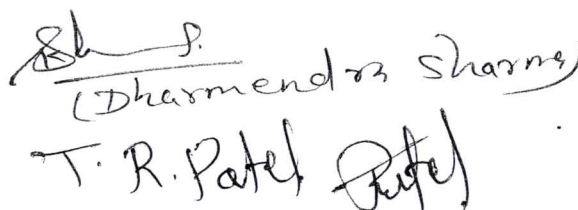 (Dharmendra Sharma)
T. R. Patel Patel